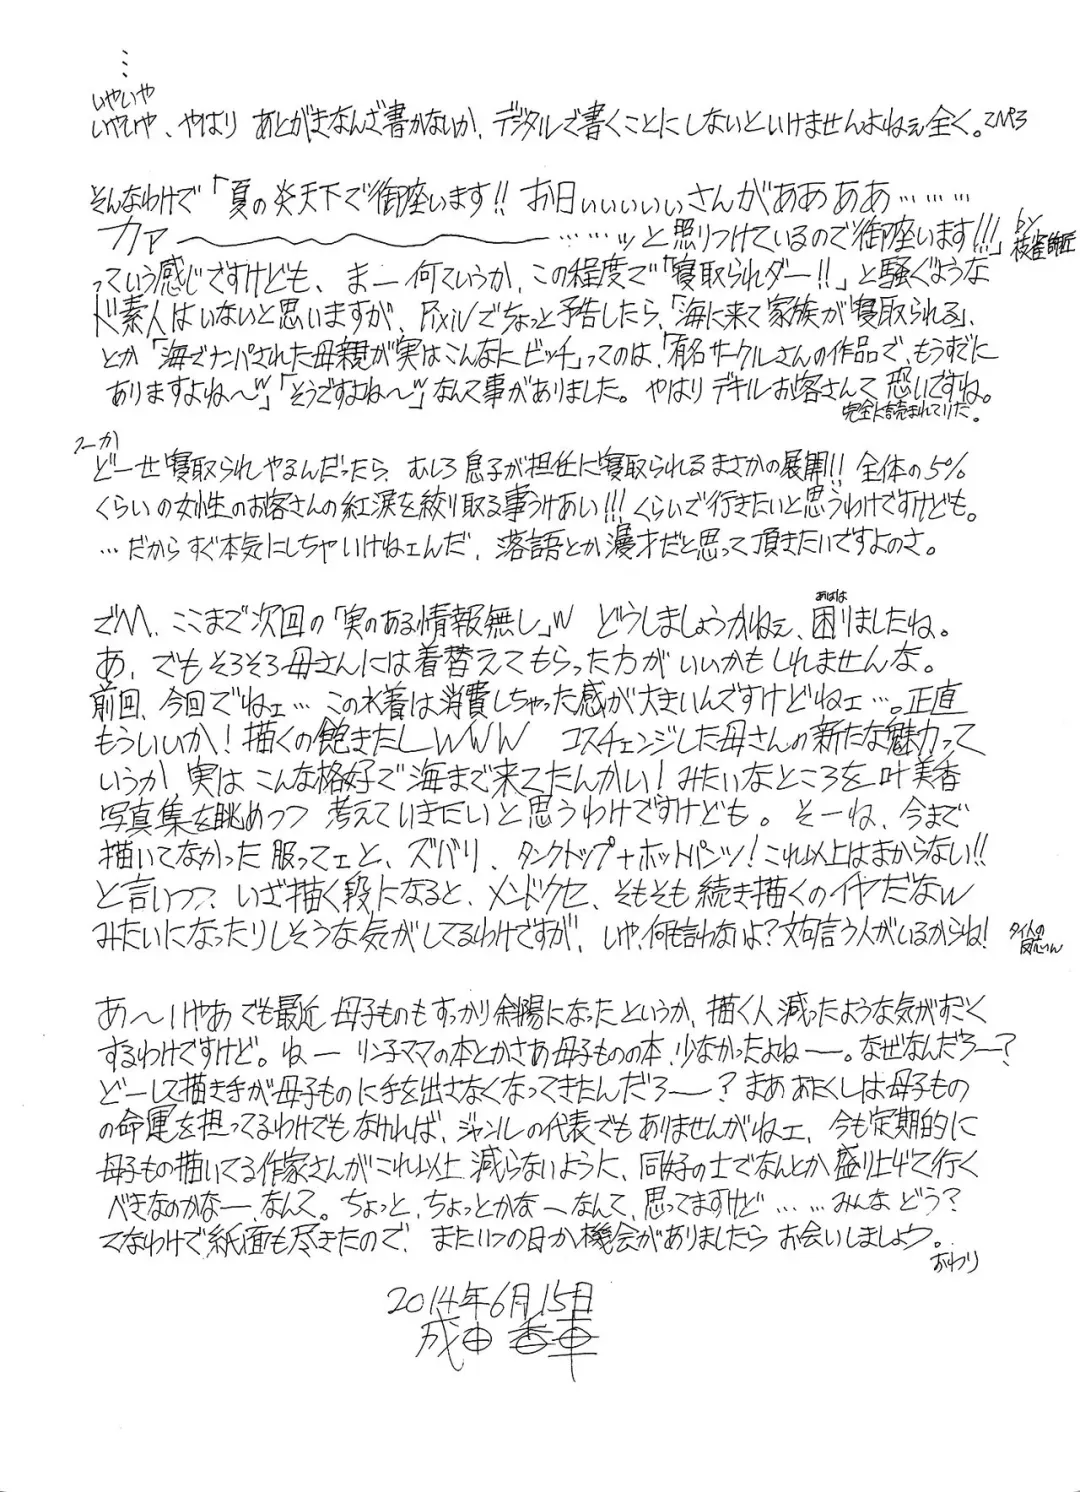 …
いやいや
いやいや、やはり あとがきなんざ書かないか、デジタルで書くことにしないといけませんよねぇ全く。
そんなわけで「夏の炎天下で御座います!! お日ぃぃぃぃぃさんがああああ………
カァ〜〜〜……ッと照りつけているので御座います!!!」 by 枝雀師匠
っていう感じですけども、まー何ていうか、この程度で「寝取られダー!!」と騒ぐような
ド素人はいないと思いますが、Pixivでちょっと予告したら、「海に来て家族が寝取られる」、
とか「海でナンパされた母親が実はこんなにビッチ」ってのは、「有名サークルさんの作品で、もうすでに
ありますよね〜ww」「そうですよね〜ww」なんて事がありました。やはりデキルお客さんて恐いですね。
完全に読まれていた。
つーか
どーせ寝取られやるんだったら、むしろ息子が担任に寝取られるまさかの展開!! 全体の5%
くらいの女性のお客さんの紅涙を絞り取る事うけあい!!! くらいで行きたいと思うわけですけども。
…だからすぐ本気にしちゃいけねェんだ、落語とか漫才だと思って頂きたいですよのさ。
でw、ここまで次回の「実のある情報無し」w どうしましょうかねぇ、困りましたね。
あはは
あ、でもそろそろ母さんには着替えてもらった方がいいかもしれませんな。
前回、今回でねェ…この水着は消費しちゃった感が大きいんですけどねェ…。正直
もういいか!描くの飽きたしwww コスチェンジした母さんの新たな魅力って
いうか、実はこんな格好で海まで来てたんかい!みたいなところを叶美香
写真集を眺めつつ考えていきたいと思うわけですけども。そーね、今まで
描いてなかった服ってェと、ズバリ、タンクトップ+ホットパンツ!これ以上はまからない!!
と言いつつ、いざ描く段になると、メンドクセ、そもそも続き描くのイヤだなw
みたいになったりしそうな気がしてるわけですが、いや、何も言わないよ?文句言う人がいるからね!
あ〜いやあでも最近母子ものもすっかり斜陽になったというか、描く人減ったような気がすごく
するわけですけど。ねーリン子ママの本とかさあ母子ものの本、少なかったよねー。なぜなんだろー?
どーして描き手が母子ものに手を出さなくなってきたんだろー?まああたくしは母子もの
の命運を担ってるわけでもなければ、ジャンルの代表でもありませんがねェ、今も定期的に
母子もの描いてる作家さんがこれ以上減らないように、同好の士でなんとか盛り上げて行く
べきなのかなー、なんて。ちょっと、ちょっとかなーなんて、思ってますけど……みんなどう?
てなわけで紙面も尽きたので、またいつの日か機会がありましたらお会いしましょう。
おわり
2014年6月15日
成田香車